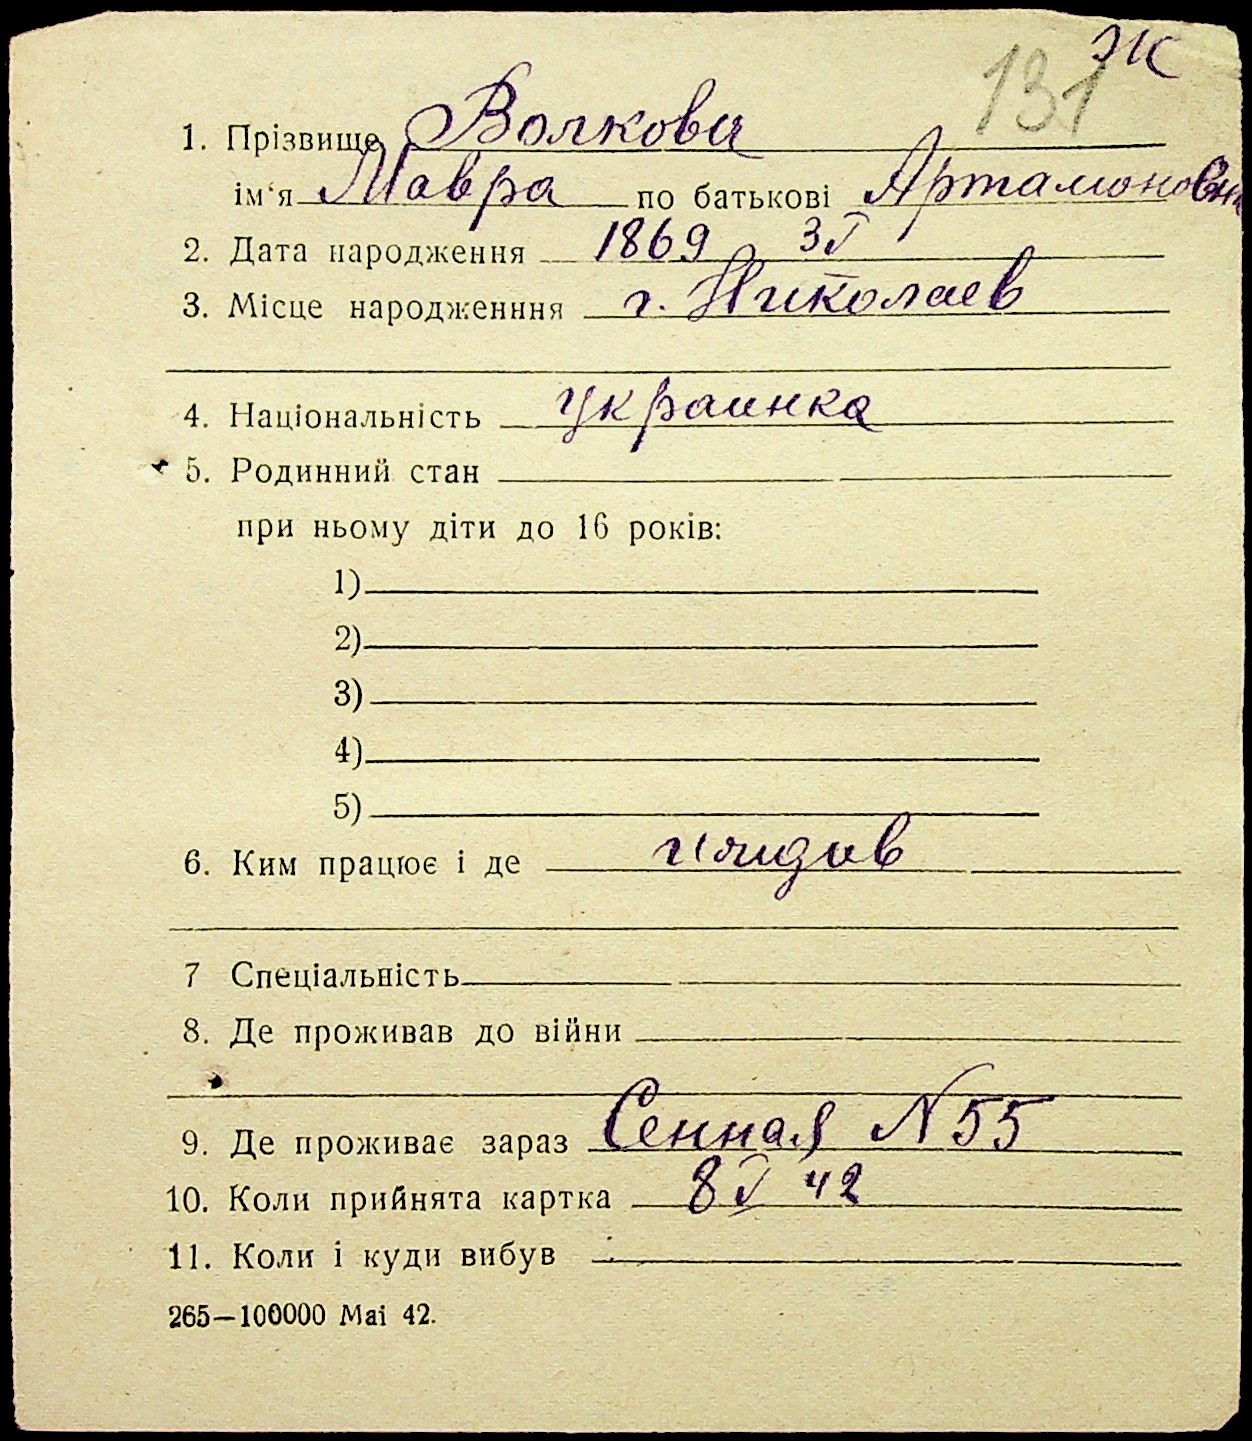 Ж
131
1. Прізвище Волкова
ім‘я Мавра по батькові Артамоновна
2. Дата народження 1869 3 V
3. Місце народженння г. Николаев
4. Національність украинка
5. Родинний стан
при ньому діти до 16 років:
1)
2)
3)
4)
5)
6. Ким працює і де
7 Спеціальність
8. Де проживав до війни
9. Де проживає зараз Сенная N 55
10. Коли прийнята картка 8 V 42
11. Коли і куди вибув
265—100000 Mai 42.